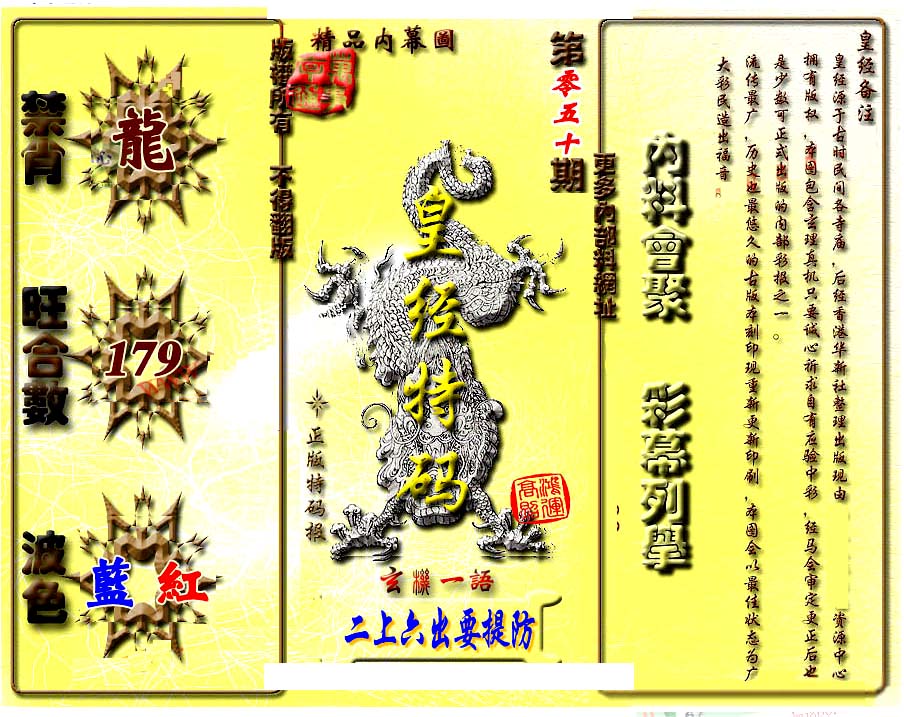 精品內幕圖
第零五十期
版權所有 不得翻版
更多內部料網址
禁肖
龍
旺合數
179
波色
藍 紅
皇经特码
正版特码报
鴻運高照
玄機一語
二上六出要提防
內料會聚
彩幕列舉
皇经备注
皇经源于古时民间各寺庙，后经香港华新社整理出版现由 资源中心
拥有版权，本图包含玄理真机只要诚心祈求自有应验中彩，经马会审定更正后也
是少数可正式出版的内部彩报之一。
流传最广，历史也最悠久的古版本刻印现重新更新印刷，本图会以最佳状态为广
大彩民造出福音